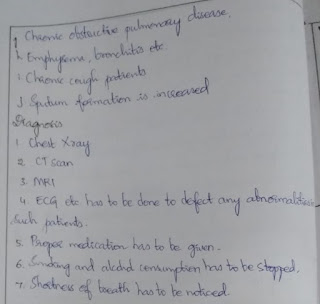 g Chronic obstuctive pulmonary disease.
h. Emphysema, bronchitis etc
i Chronic cough patients
J Sputum formation is increased
Diagnosis
1 Chest Xray
2 CT scan
3. MRI
4. ECG etc has to be done to detect any abnormalities
such patients.
5. Proper medication has to be given.
6. Smoking and alcohol consumption has to be stopped.
7. Shortness of breath has to be noticed.